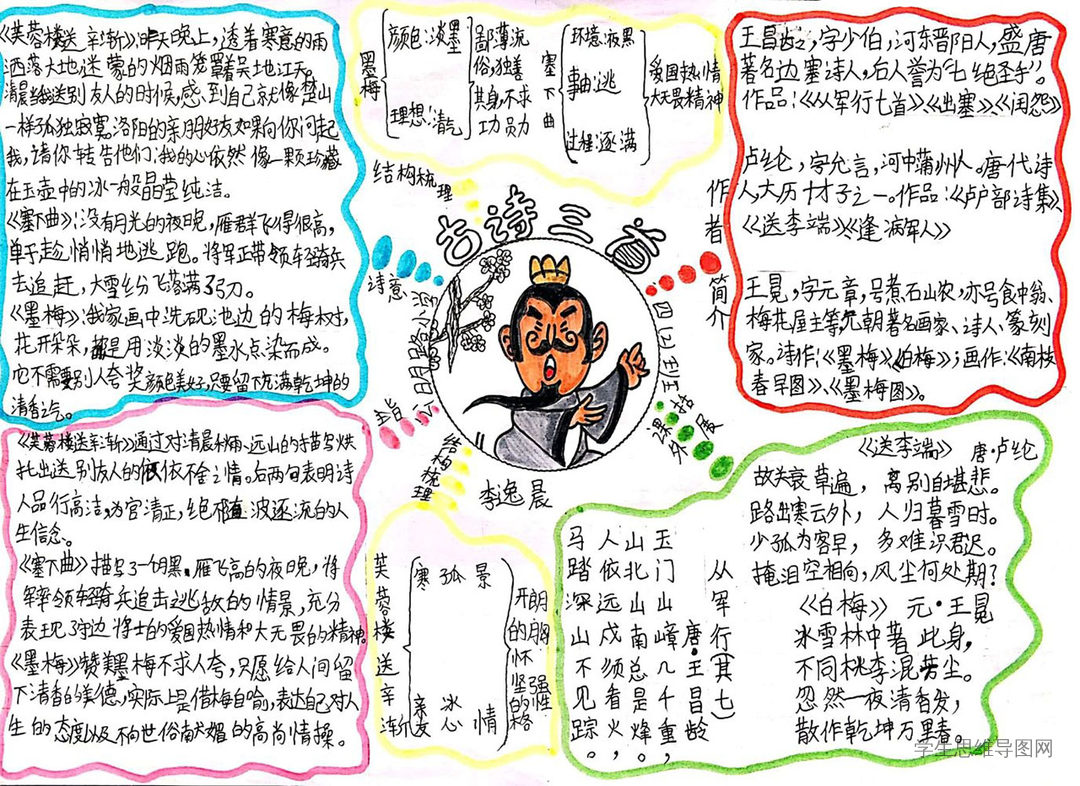 《芙蓉楼送辛渐》:昨天晚上，透着寒意的雨
洒落大地,迷蒙的烟雨笼罩着吴地江天。
清晨当我送别友人的时候,感到自己就像楚山
一样孤独寂寞。洛阳的亲朋好友如果向你问起
我,请你转告他们:我的心依然像一颗珍藏
在玉壶中的冰一般晶莹纯洁。
《塞下曲》:没有月光的夜晚,雁群飞得很高,
单于趁悄悄地逃跑。将军正带领轻骑兵
去追赶,大雪纷飞落满了弓刀。
《墨梅》:我家画中洗砚池边的梅树,
花开朵朵,都是用淡淡的墨水点染而成。
它不需要别人夸奖颜色美好,只要留下充满乾坤的
清香之气。
诗意
墨梅
颜色:淡墨
理想:清气
鄙薄流
俗,独善
其身,不求
功
塞下曲
环境:夜黑
事由:逃
过程:逐满
爱国热情
大无畏精神
结构梳理
王昌龄,字少伯,河东晋阳人,盛唐
著名边塞诗人,后人誉为“七绝圣手”。
作品:《从军行七首》《出塞》《闺怨》
卢纶,字允言,河中蒲州人。唐代诗
人,大历十才子之一。作品:《卢户部诗集》、
《送李端》《逢病军人》
王冕,字元章,号煮石山农,亦号食中翁、
梅花屋主等,元朝著名画家、诗人、篆刻
家。诗作:《墨梅》《白梅》;画作:《南枝
春早图》、《墨梅图》。
作者简介
古诗三首
李逸晨
主旨
《芙蓉楼送辛渐》通过对清晨、远山的描写烘
托出送别友人的依依不舍之情。后两句表明诗
人品行高洁,为官清正,绝不随波逐流的人
生信念。
《塞下曲》描写了一个月黑、雁飞高的夜晚,将
军率领轻骑兵追击逃敌的情景,充分
表现了守边将士的爱国热情和大无畏的精神。
《墨梅》赞美墨梅不求人夸,只愿给人间留
下清香的美德,实际上是借梅自喻,表达自己对人
生的态度以及不向世俗献媚的高尚情操。
结构梳理
芙蓉楼送辛渐
寒 孤 景
亲友 冰心 情
开朗的胸怀
坚强的性格
课外拓展
《送李端》 唐·卢纶
故关衰草遍， 离别自堪悲。
路出寒云外， 人归暮雪时。
少孤为客早， 多难识君迟。
掩泪空相向，风尘何处期？
《白梅》 元·王冕
冰雪林中著此身，
不同桃李混芳尘。
忽然一夜清香发，
散作乾坤万里春。
从军行(其七)
唐·王昌龄
玉门山嶂几千重，
山北山南总是烽。
人依远戍须看火，
马踏深山不见踪。
学生思维导图网